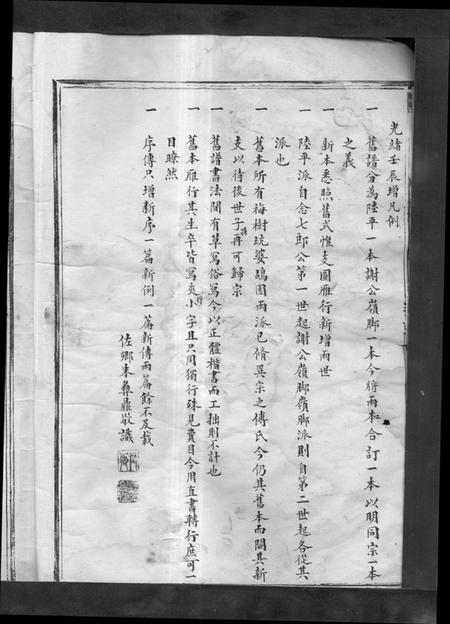 光緒壬辰增凡例
一 舊譜分為陸平一本謝公嶺腳一本今將兩本合訂一本以明同宗一本
之義
一 新本悉照舊式惟支圖雁行新增兩世
一 陸平派自念七郎公第一世起謝公嶺腳嶺腳派則自第二世起各從其
派也
一 舊本所有梅樹琉婆鴣圓兩派已脩異宗之傳氏今仍其舊本而闕其新
支以待後世子孫再可歸宗
一 舊譜書法間有草寫俗寫今以正體楷書而工拙則不計也
一 舊本雁行其生卒皆寫夾行小字且只用獨行殊見費目今用直書轉行庶可一
目瞭然
一 序傳只增新序一篇新例一篇新傳兩篇餘不及載
佐鄉朱彝鼎敬識